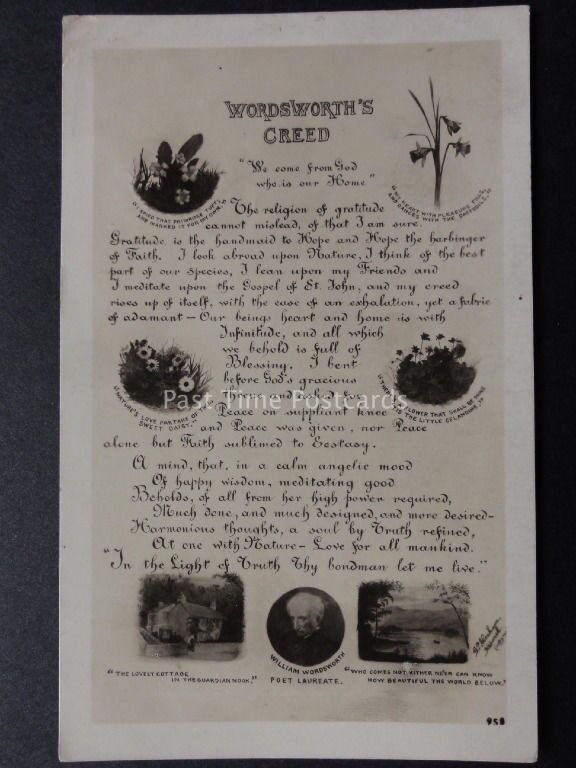 WORDSWORTH'S
CREED
"We come from God
who is our Home"
"I SPIED THAT PRIMROSE TUFT
AND MARKED IT FOR MY OWN"
"MY HEART WITH PLEASURE FILLS,
AND DANCES WITH THE DAFFODILS."
The religion of gratitude
cannot mislead, of that I am sure.
Gratitude is the handmaid to Hope and Hope the harbinger
of Faith. I look abroad upon Nature, I think of the best
part of our species, I lean upon my Friends and
I meditate upon the Gospel of St. John; and my creed
rises up of itself, with the ease of an exhalation, yet a fabric
of adamant – Our beings heart and home is with
Infinitude, and all which
we behold is full of
Blessing. I bent
before God's gracious
Throne and asked for
Peace on suppliant knee
and Peace was given, nor Peace
alone but Faith sublimed to Ecstasy.
"NATURE'S LOVE PARTAKE OF THEE
SWEET DAISY."
FLOWER THAT SHALL BE MINE
'TIS THE LITTLE CELANDINE."
Past Time Postcards
A mind, that, in a calm angelic mood
Of happy wisdom, meditating good
Beholds, of all from her high power required,
Much done, and much designed, and more desired–
Harmonious thoughts, a soul by Truth refined,
At one with Nature – Love for all mankind.
"In the Light of Truth Thy bondman let me live."
"THE LOVELY COTTAGE
IN THE GUARDIAN NOOK."
WILLIAM WORDSWORTH
POET LAUREATE.
"WHO COMES NOT HITHER NE'ER CAN KNOW
HOW BEAUTIFUL THE WORLD BELOW."
958